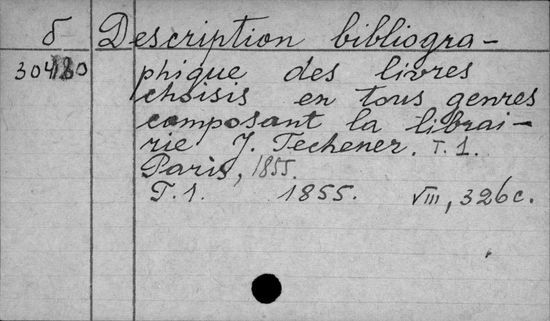 б Description bibliogra-
304180 phique des livres
choisis en tous genres
composant la librai-
rie J. Techener. T. 1.
Paris, 1855.
T. 1. 1855. VIII, 326 c.